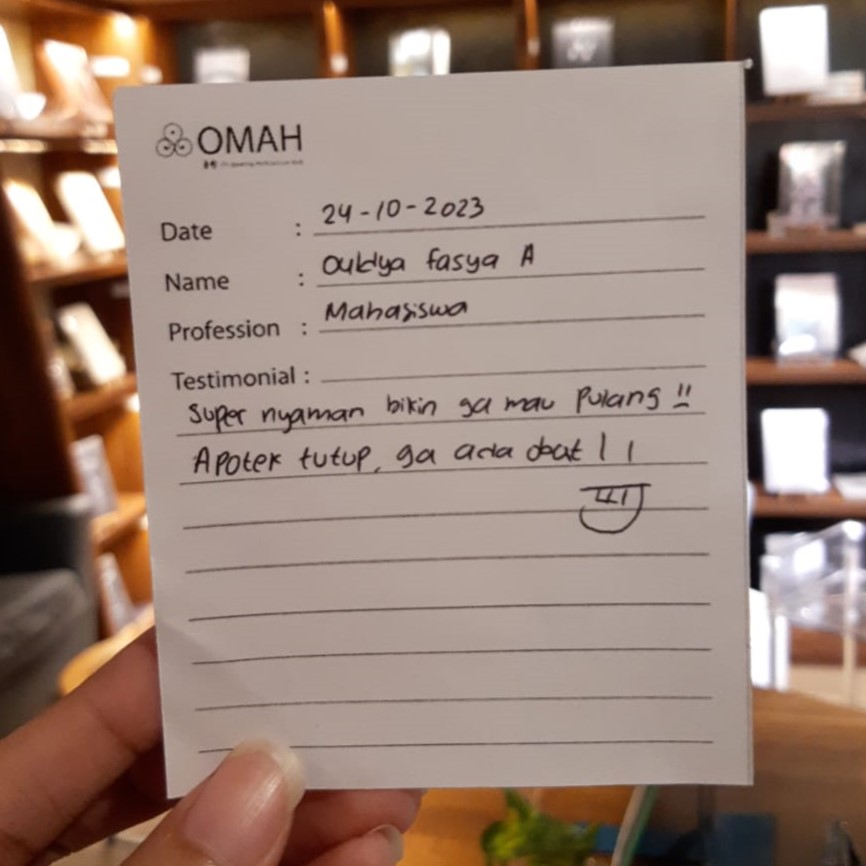 OMAH
Date : 24-10-2023
Name : Ouldya fasya A
Profession : Mahasiswa
Testimonial :
Super nyaman bikin ga mau pulang !!
Apotek tutup, ga ada obat ! !